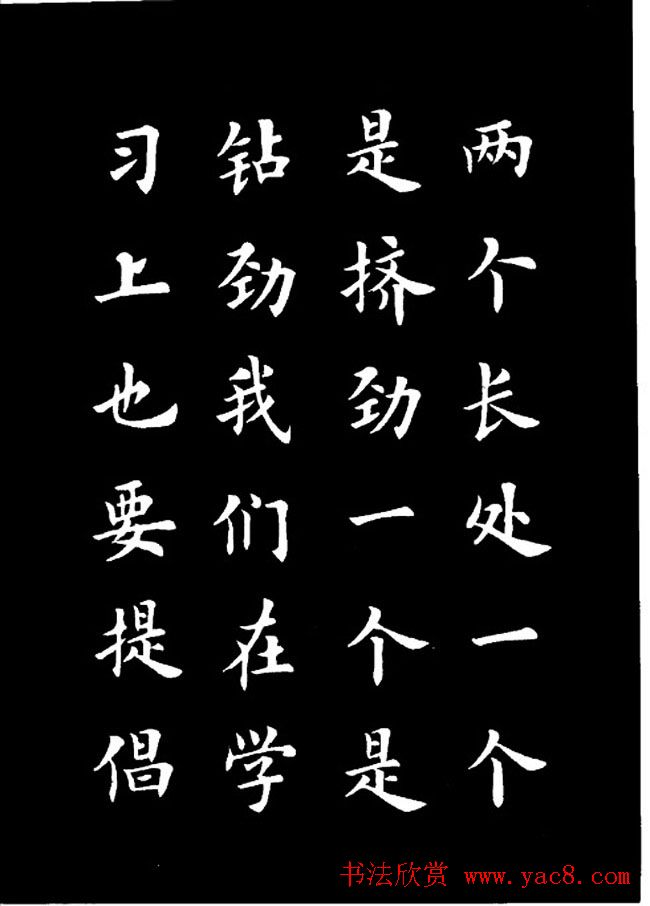 两个长处一个
是挤劲一个是
钻劲我们在学
习上也要提倡
书法欣赏 www.yac8.com